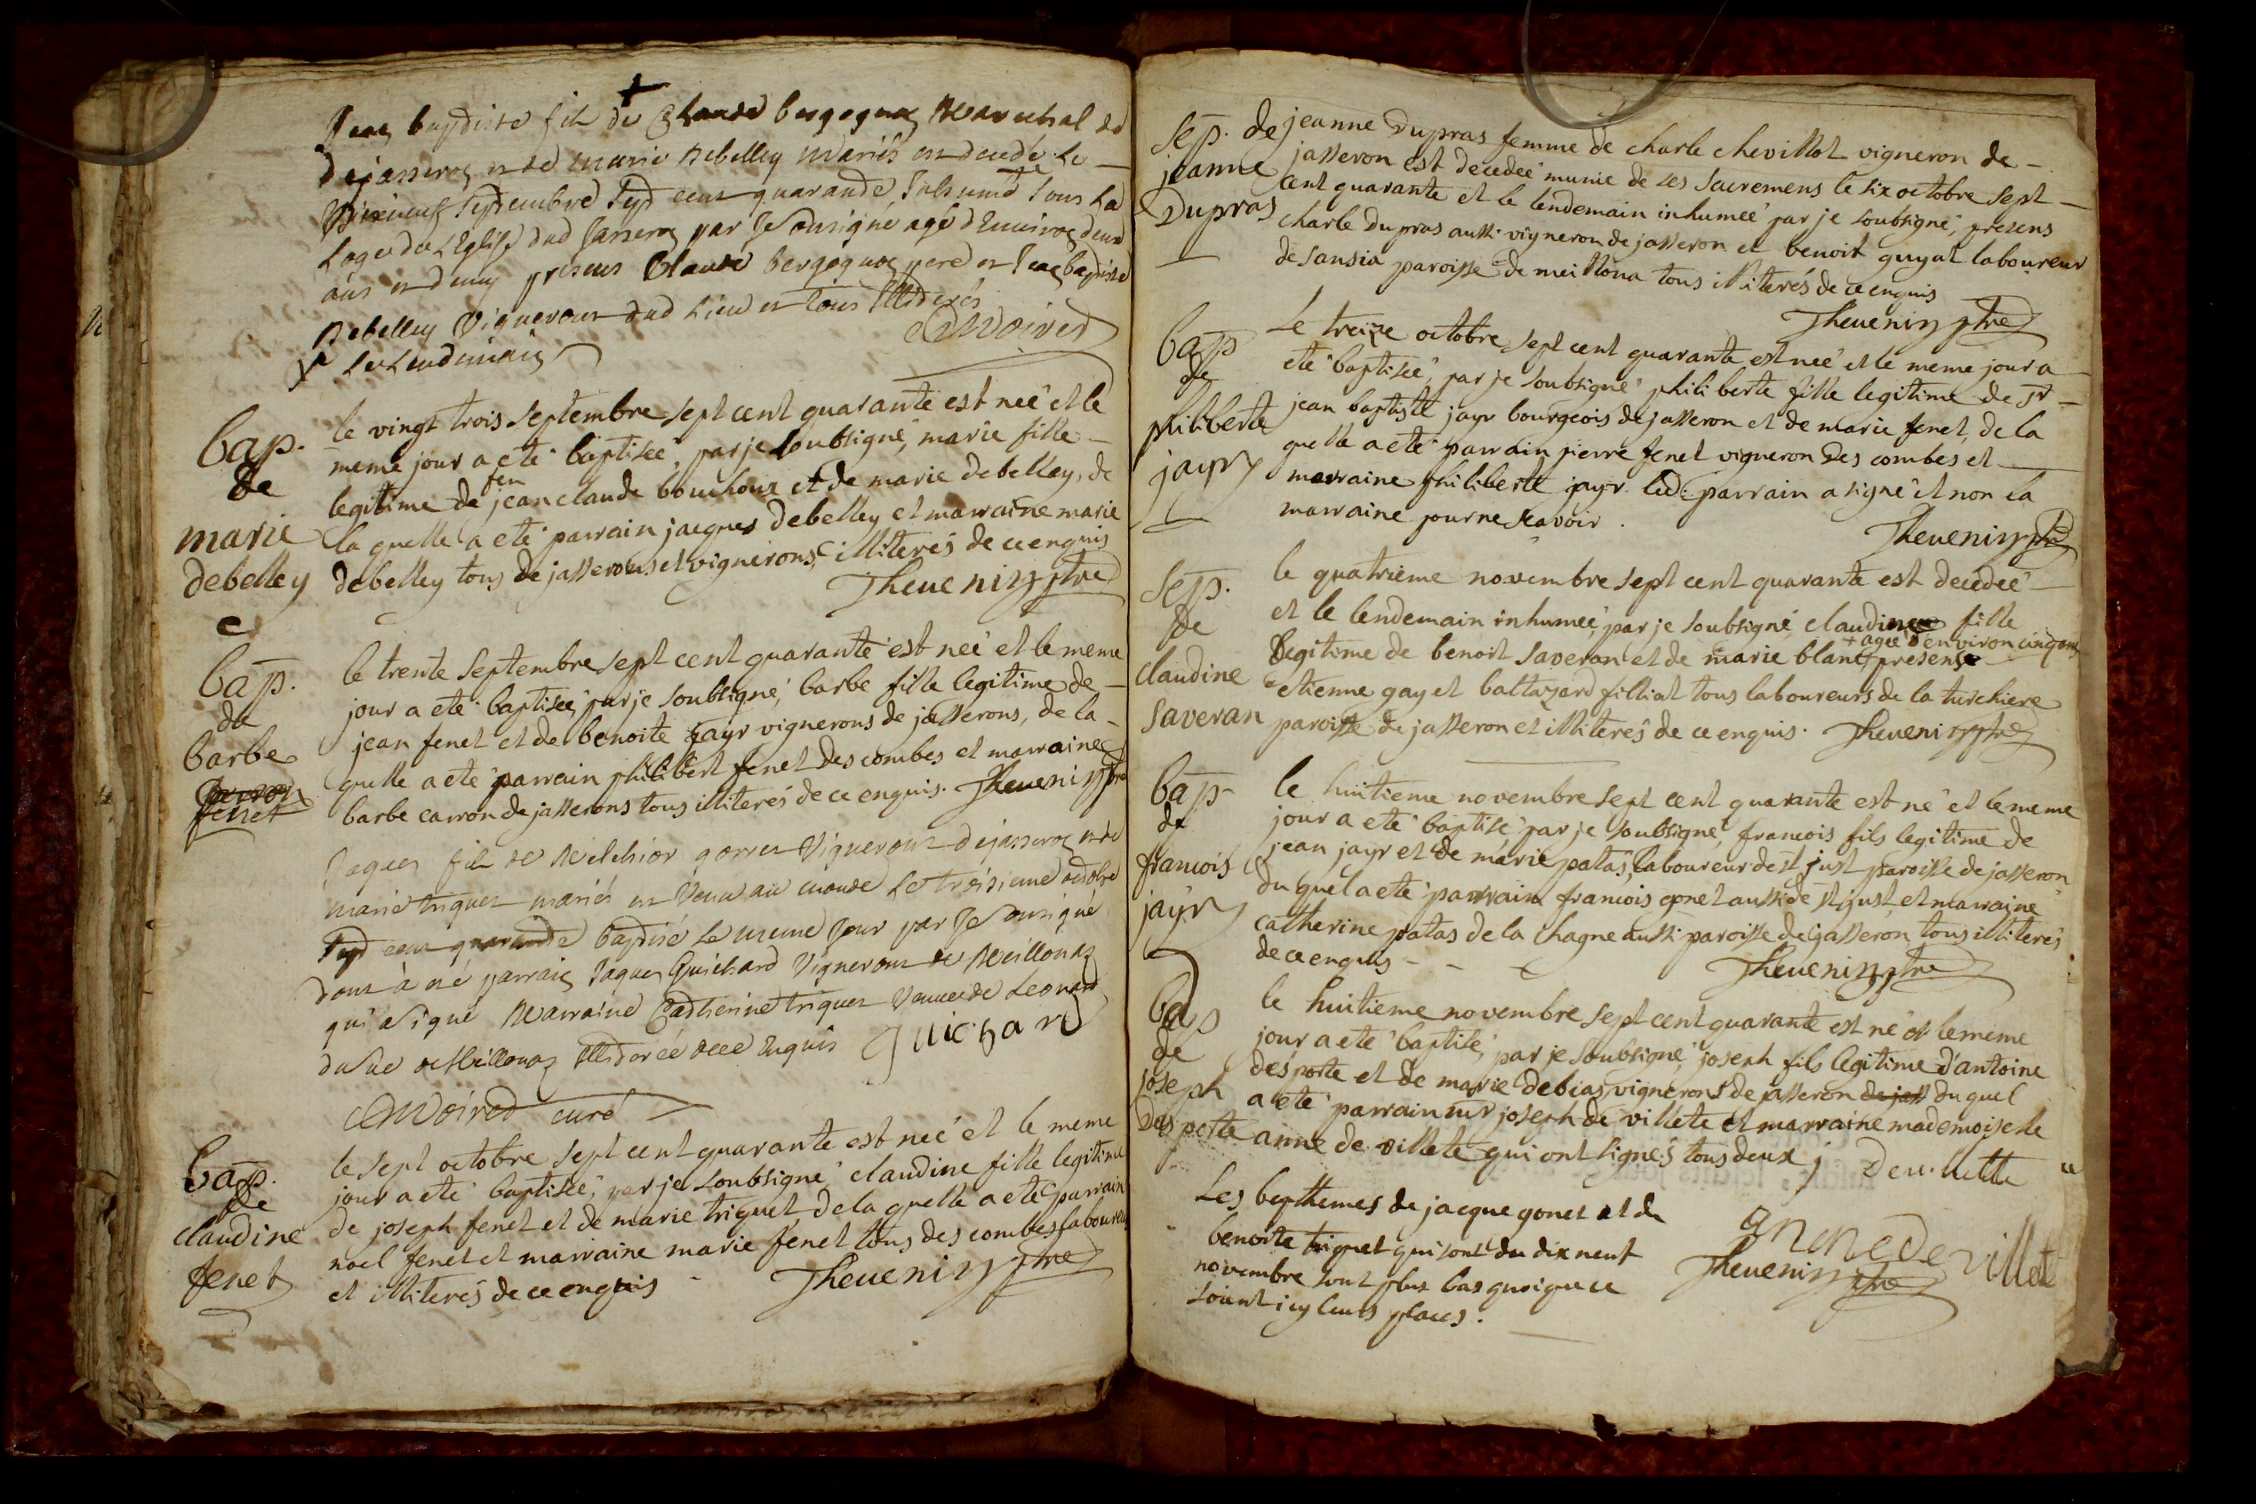 Jean baptiste fils de Claude bergognon Marechal
de jasseron et de marie debelley mariés est decedé le
dixneuf septembre sept cent quarante inhumé sous la
dud jasseron par je sousigné agé d'environ deux
ans et demy presens Claude bergognon pere et Jean baptiste
debelley vignerons dud lieu et tous illiterés
le lendemain
bap.
de
marie
debelley
le vingt trois septembre sept cent quarante est neé et le
meme jour a eté baptiseé, par je soubsigné, marie fille
legitime de feu jean claude bouchoux et de marie debelley, de
la quelle a eté parrain jacques debelley et marraine marie
debelley tous de jasserons et vignerons, illiterés de ce enquis
Thevenin ptre
bap.
de
barbe
fenet
le trente septembre sept cent quarante est neé et le meme
jour a eté baptiseé, par je soubsigné, barbe fille legitime de
jean fenet et de benoite jayr vignerons de jasserons, de la
quelle a eté parrain philibert fenet des combes et marraine
barbe carron de jasserons tous illiterés de ce enquis. Thevenin ptre
Jaques fils de Melchior gonnet vigneront de jasseron et de
marie triquet mariés est venu au monde le troisieme octobre
sept cent quarante baptisé le meme jour par je sousigné
dont à eté parrain Jaques Guichard vigneront de Meillonaz
qui a signé Marraine Catherine triquet veuve de Leonard
de Meillonaz illiterée de ce enquis Guichard
curé
bap.
de
claudine
fenet
le sept octobre sept cent quarante est neé et le meme
jour a eté baptiseé, par je soubsigné, claudine fille legitime
de joseph fenet et de marie triquet, de la quelle a eté parrain
noel fenet et marraine marie fenet tous des combes laboureurs
et illiterés de ce enquis
Thevenin ptre
sep. de
jeanne
Dupras
jeanne Dupras femme de charle chevillot vigneron de
jasseron est decedeé munie de ses sacremens le six octobre sept
cent quarante et le lendemain inhumeé par je soubsigné, presens
charle dupras aussi vigneron de jasseron et benoit guyat laboureur
de sansia paroisse de meillona tous illiterés de ce enquis
Thevenin ptre
bap
de
philiberte
jayr
Le treize octobre sept cent quarante est neé et le meme jour a
eté baptiseé, par je soubsigné philiberte fille legitime de sr
jean baptiste jayr bourgeois de jasseron et de marie fenet, de la
quelle a eté parrain pierre fenet vigneron des combes et
marraine philiberte jayr. led: parrain a signé et non la
marraine pour ne scavoir.
Thevenin ptre
sep.
de
claudine
saveran
le quatrieme novembre sept cent quarante est decedeé
et le lendemain inhumeé, par je soubsigné claudine fille
+ ageé d'environ cinq ans
legitime de benoit saveran et de marie blanc + presens
etienne gay et baltazard filliat tous laboureurs de la turchiere
paroisse de jasseron et illiterés de ce enquis. Thevenin ptre
bap
de
francois
jayr
le huitieme novembre sept cent quarante est né et le meme
jour a eté baptisé par je soubsigné, francois fils legitime de
jean jayr et de marie patas, laboureur de st just paroisse de jasseron
du quel a eté parrain francois gonet aussi de st just, et marraine
catherine patas de la chagne aussi paroisse de jasseron tous illiterés
de ce enquis
Thevenin ptre
bap
de
joseph
Desporte
le huitieme novembre sept cent quarante est né et le meme
jour a eté baptisé, par je soubsigné, joseph fils legitime d'antoine
desporte et de marie debias, vignerons de jasseron de jass du quel
a eté parrain mr joseph de villete et marraine mademoiselle
anne de villete qui ont signés tous deux j Devillette
Les bepthemes de jacque gonet et de
benoite triquet qui sont du dix neuf
novembre sont plus bas quoique ce
soient icy leurs places.
anne de villete
Thevenin ptre